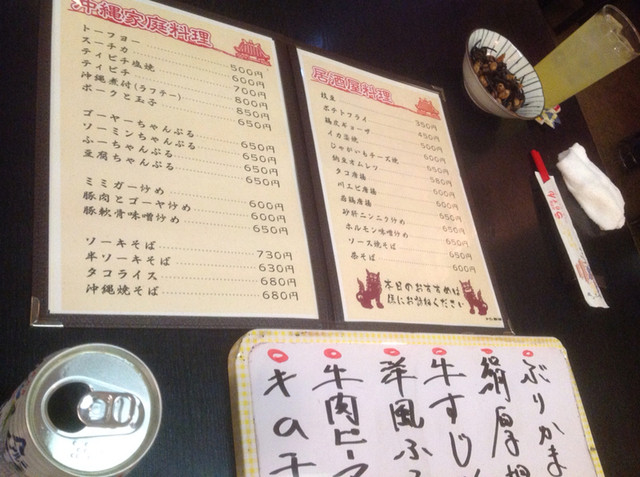 沖縄家庭料理
トーフヨー 500円
スーチカ 600円
ティビチ塩焼 700円
ティビチ 800円
沖縄煮付(ラフテー) 850円
ポークと玉子 650円
ゴーヤーちゃんぷる 650円
ソーミンちゃんぷる 650円
ふーちゃんぷる 650円
豆腐ちゃんぷる 650円
ミミガー炒め 600円
豚肉とゴーヤ炒め 600円
豚軟骨味噌炒め 650円
ソーキそば 730円
半ソーキそば 630円
タコライス 680円
沖縄焼そば 680円
居酒屋料理
枝豆 350円
ポテトフライ 450円
ギョーザ 500円
イカ 600円
じゃがいもチーズ焼
納豆オムレツ
タコ唐揚
川エビ唐揚 600円
若鶏唐揚
砂肝ニンニク炒め 650円
ホルモン味噌炒め 650円
ソース焼そば 650円
600円
本日のおすすめは
係にお訪ねください
ぶりかま
牛すじ
洋風ふ
牛肉ピー
キの